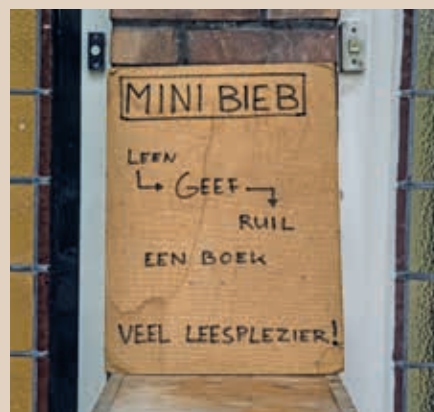 MINI BIEB
LEEN
GEEF
RUIL
EEN BOEK
VEEL LEESPLEZIER!